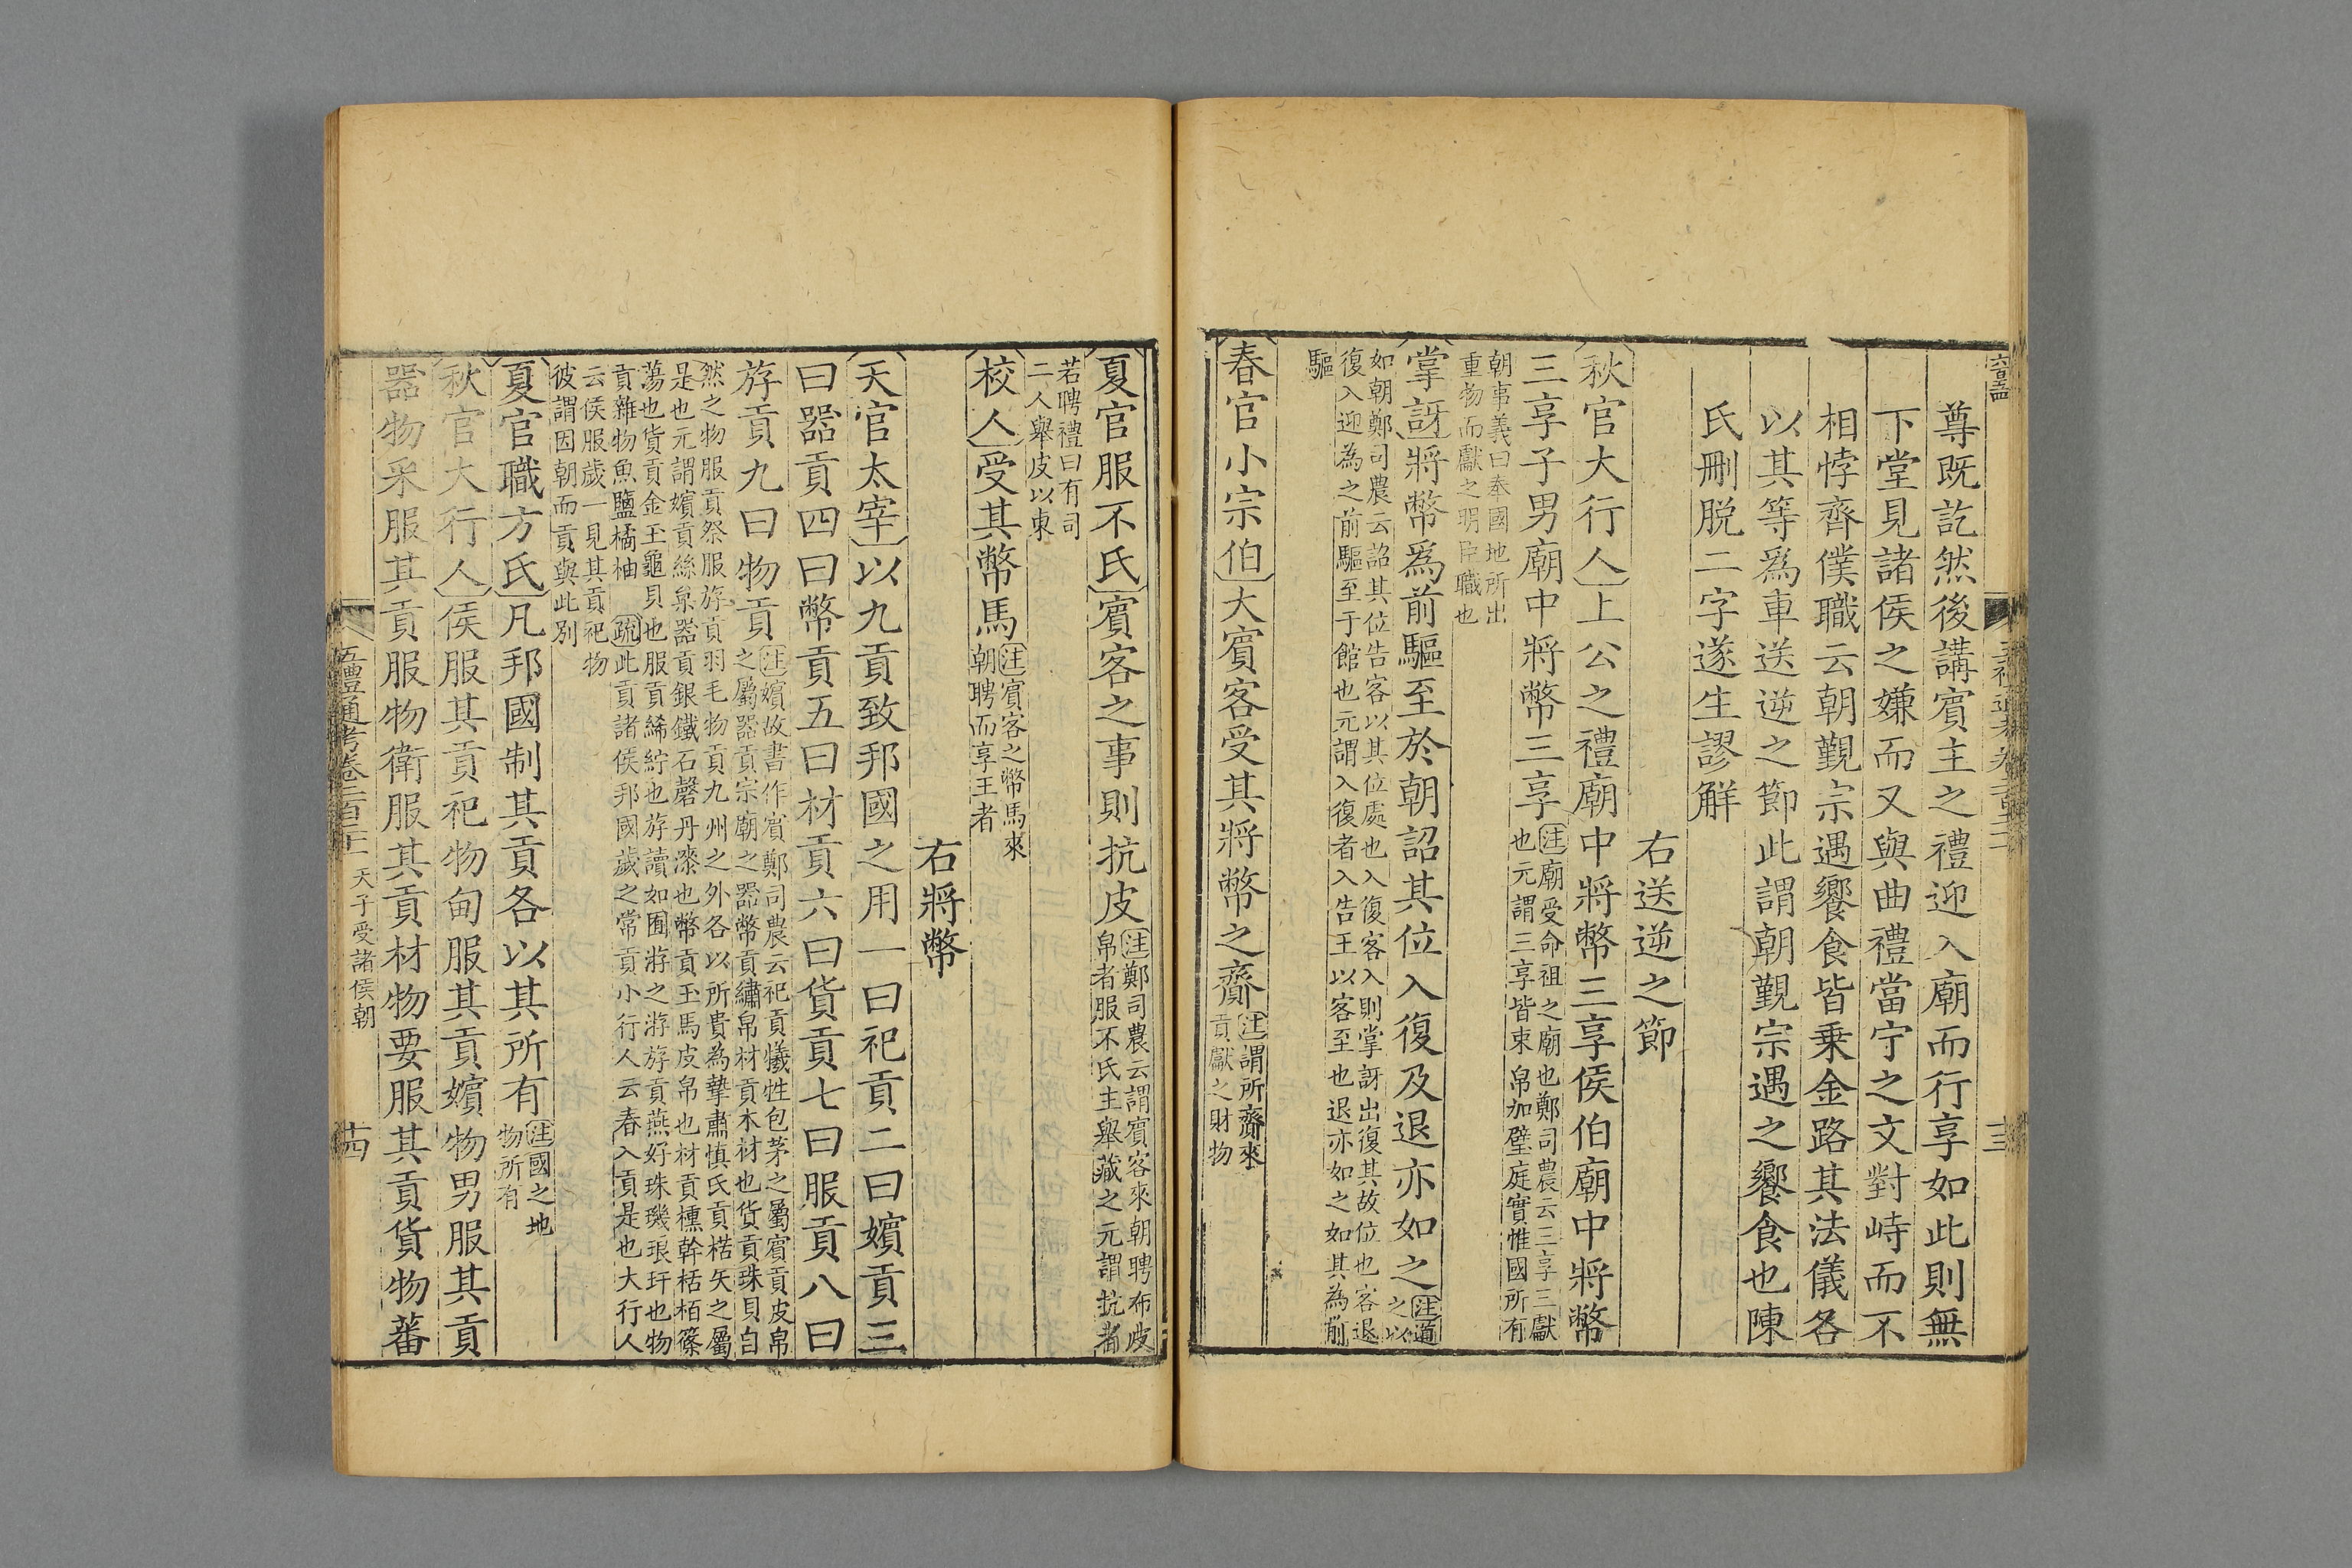 尊既訖然後講賓主之禮迎入廟而行享如此則無
下堂見諸侯之嫌而又與曲禮當宁之文對峙而不
相悖齊僕職云朝覲宗遇饗食皆乗金路其法儀各
以其等爲車送逆之節此謂朝覲宗遇之饗食也陳
氏刪脱二字遂生謬解
右送逆之節
秋官大行人上公之禮廟中將幣三享侯伯廟中將幣
三享子男廟中將幣三享
注廟受命祖之廟也鄭司農云三享三獻
也元謂三享皆束帛加璧庭實惟國所有
朝事義曰奉國地所出
重物而獻之明臣職也
掌訝將幣爲前驅至於朝詔其位入復及退亦如之
注道
之以
如朝鄭司農云詔其位告客以其位處也入復客入則掌訝出復其故位也客退
復入迎為之前驅至于館也元謂入復者入告王以客至也退亦如之如其為前
驅
春官小宗伯大賓客受其將幣之齎
注謂所齎來
貢獻之財物
夏官服不氏賓客之事則抗皮
注鄭司農云謂賓客來朝聘布皮
帛者服不氏主舉藏之元謂抗者
若聘禮曰有司
二人舉皮以東
校人受其幣馬
注賓客之幣馬來
朝聘而享王者
右將幣
天官太宰以九貢致邦國之用一曰祀貢二曰嬪貢三
曰器貢四曰幣貢五曰材貢六曰貨貢七曰服貢八曰
斿貢九曰物貢
注嬪故書作賓鄭司農云祀貢犧牲包茅之屬賓貢皮帛
之屬器貢宗廟之器幣貢繡帛材貢木材也貨貢珠貝自
然之物服貢祭服斿貢羽毛物貢九州之外各以所貴為摯肅慎氏貢楛矢之屬
是也元謂嬪貢絲枲器貢銀鐵石磬丹漆也幣貢玉馬皮帛也材貢櫄幹栝栢篠
蕩也貨貢金玉龜貝也服貢絺紵也斿讀如囿游之游斿貢燕好珠璣琅玕也物
貢雜物魚鹽橘柚 疏此貢諸侯邦國歲之常貢小行人云春入貢是也大行人
云侯服歲一見其貢祀物
彼謂因朝而貢與此别
夏官職方氏凡邦國制其貢各以其所有
注國之地
物所有
秋官大行人侯服其貢祀物甸服其貢嬪物男服其貢
器物采服其貢服物衛服其貢材物要服其貢貨物蕃
五禮通考卷二百二十一 天子受諸侯朝 十四